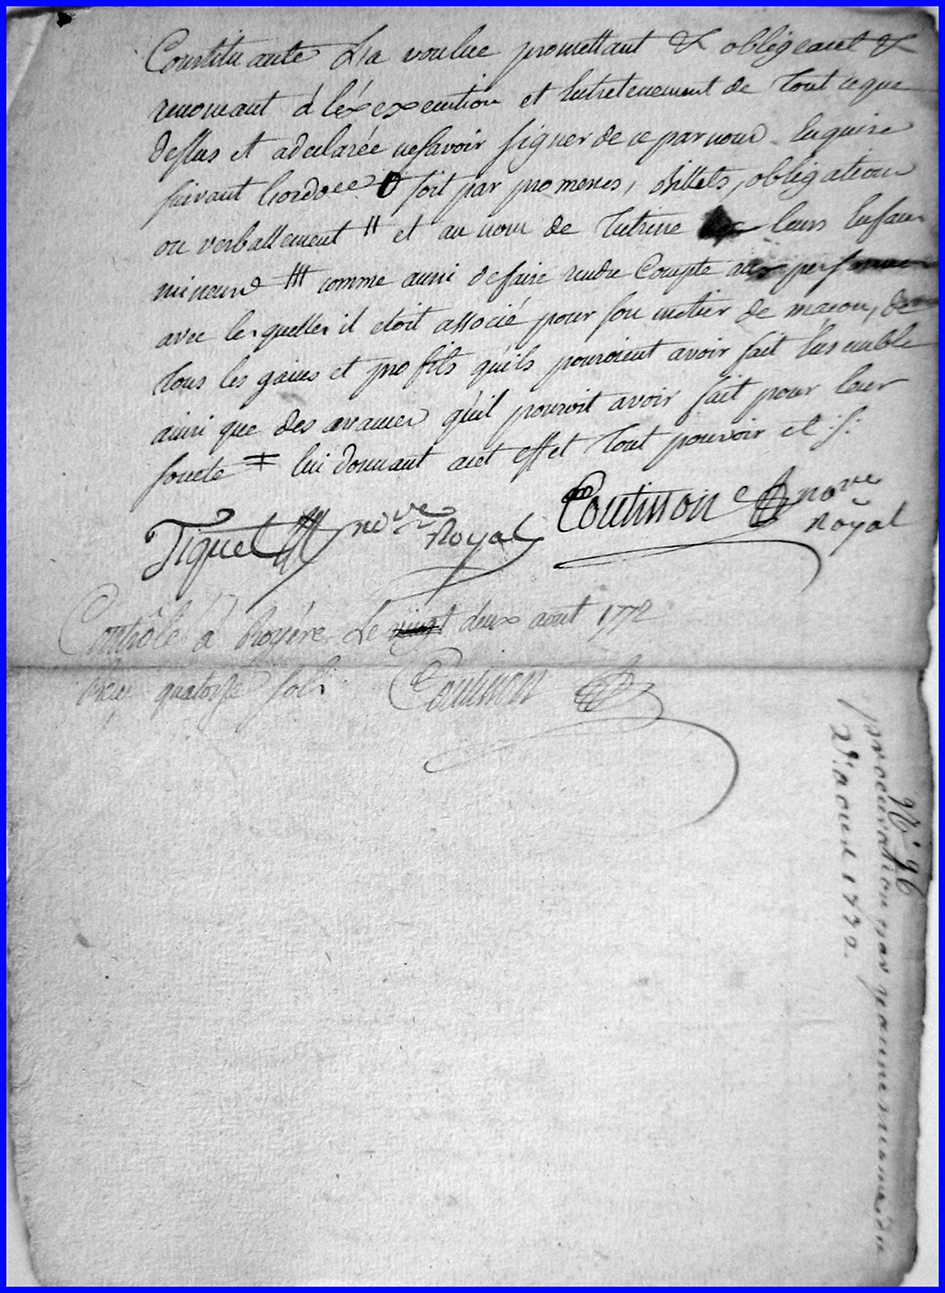 Constituante L'a voulue promettant & obligeant &
renonçant à l'éxéxecution et entretenement de tout ceque
dessus et adeclarée nesavoir signer de ce par nous Enquise
suivant Lordce O soit par promesses, billets, obligations
ou verballement # et au nom de tutrice leurs Enfans
mineurs ## comme aussi de faire rendre Compte aux personnes
avec lesquelles il etoit associé pour son metier de macon, de
tous les gains et profits quils pouroient avoir fait Ensemble
ainsi que des avances qu'il pouroit avoir fait pour leur
societe ‡ lui donnant acet effet tout pouvoir et f:
Tiquet nore Royal Coutisson nore Royal
Contrôlé à Royére Le vingt deux aout 1772
Reçu quatorze sols Coutisson
N° 96
procuration par jeanne
22 aoust 1772.